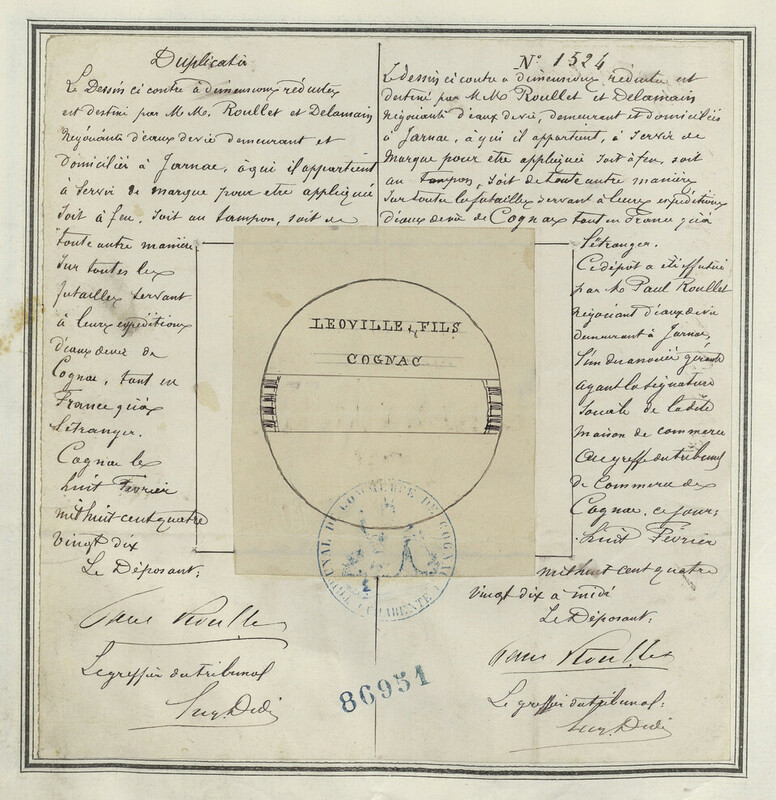 Duplicata
Le Dessin ci contre à dimensions réduites
est destiné par M M. Roullet et Delamain
Négociants d'eaux de vie demeurant et
domiciliés à Jarnac, à qui il appartient
à servir de marque pour etre appliqué
soit à feu, soit au tampon, soit de
toute autre manière
sur toutes les
futailles servant
à leurs expéditions
d'eaux de vie de
Cognac, tant en
France qu'à
l'étranger.
Cognac les
huit Février
mil huit cent quatre
vingt dix
Le Déposant;
Paul Roullet
Le greffier du tribunal
N° 1524
Le dessin ci contre à dimensions réduites est
destiné par M M Roullet et Delamain
Négociants d'eaux de vie, demeurant et domiciliés
à Jarnac, à qui il appartient, à servir de
marque pour etre appliqué soit à feu, soit
au tampon, soit de toute autre manière
sur toutes les futailles servant à leurs expéditions
d'eaux de vie de Cognac tant en France qu'à
l'étranger.
Ce dépôt a été effectué
par Mr Paul Roullet
Négociant d'eaux de vie
demeurant à Jarnac,
l'un des associés gérants
ayant la signature
sociale de la dite
maison de commerce
au greffe du tribunal
de Commerce de
Cognac, ce jour;
huit Février
mil huit cent quatre
vingt dix à midi
Le Déposant;
Paul Roullet
Le greffier du tribunal;
LEOVILLE & FILS
COGNAC
TRIBUNAL DE COMMERCE DE COGNAC
CHARENTE
86951